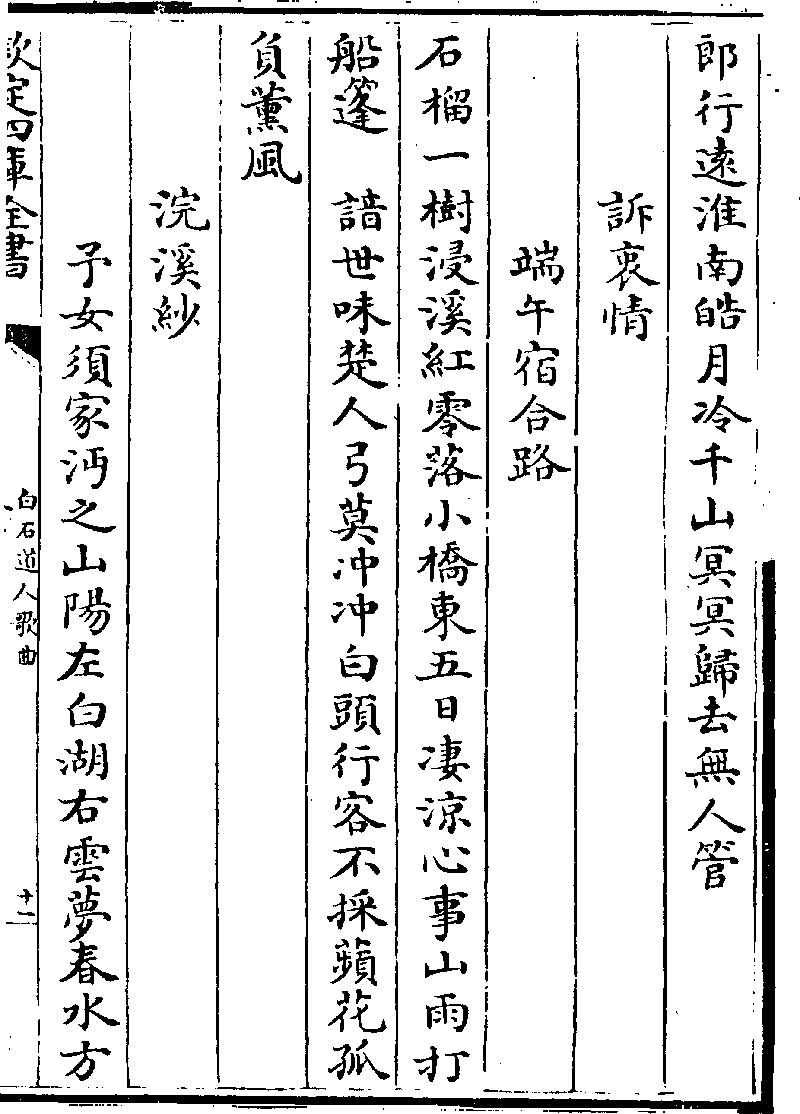 郎行遠淮南皓月冷千山冥冥歸去無人管
訴衷情
端午宿合路
石榴一樹浸溪紅零落小橋東五日凄涼心事山雨打
船篷　諳世味楚人弓莫冲冲白頭行客不採蘋花孤
負薰風
浣溪紗
予女須家沔之山陽左白湖右雲夢春水方
欽定四庫全書
白石道人歌曲
十一